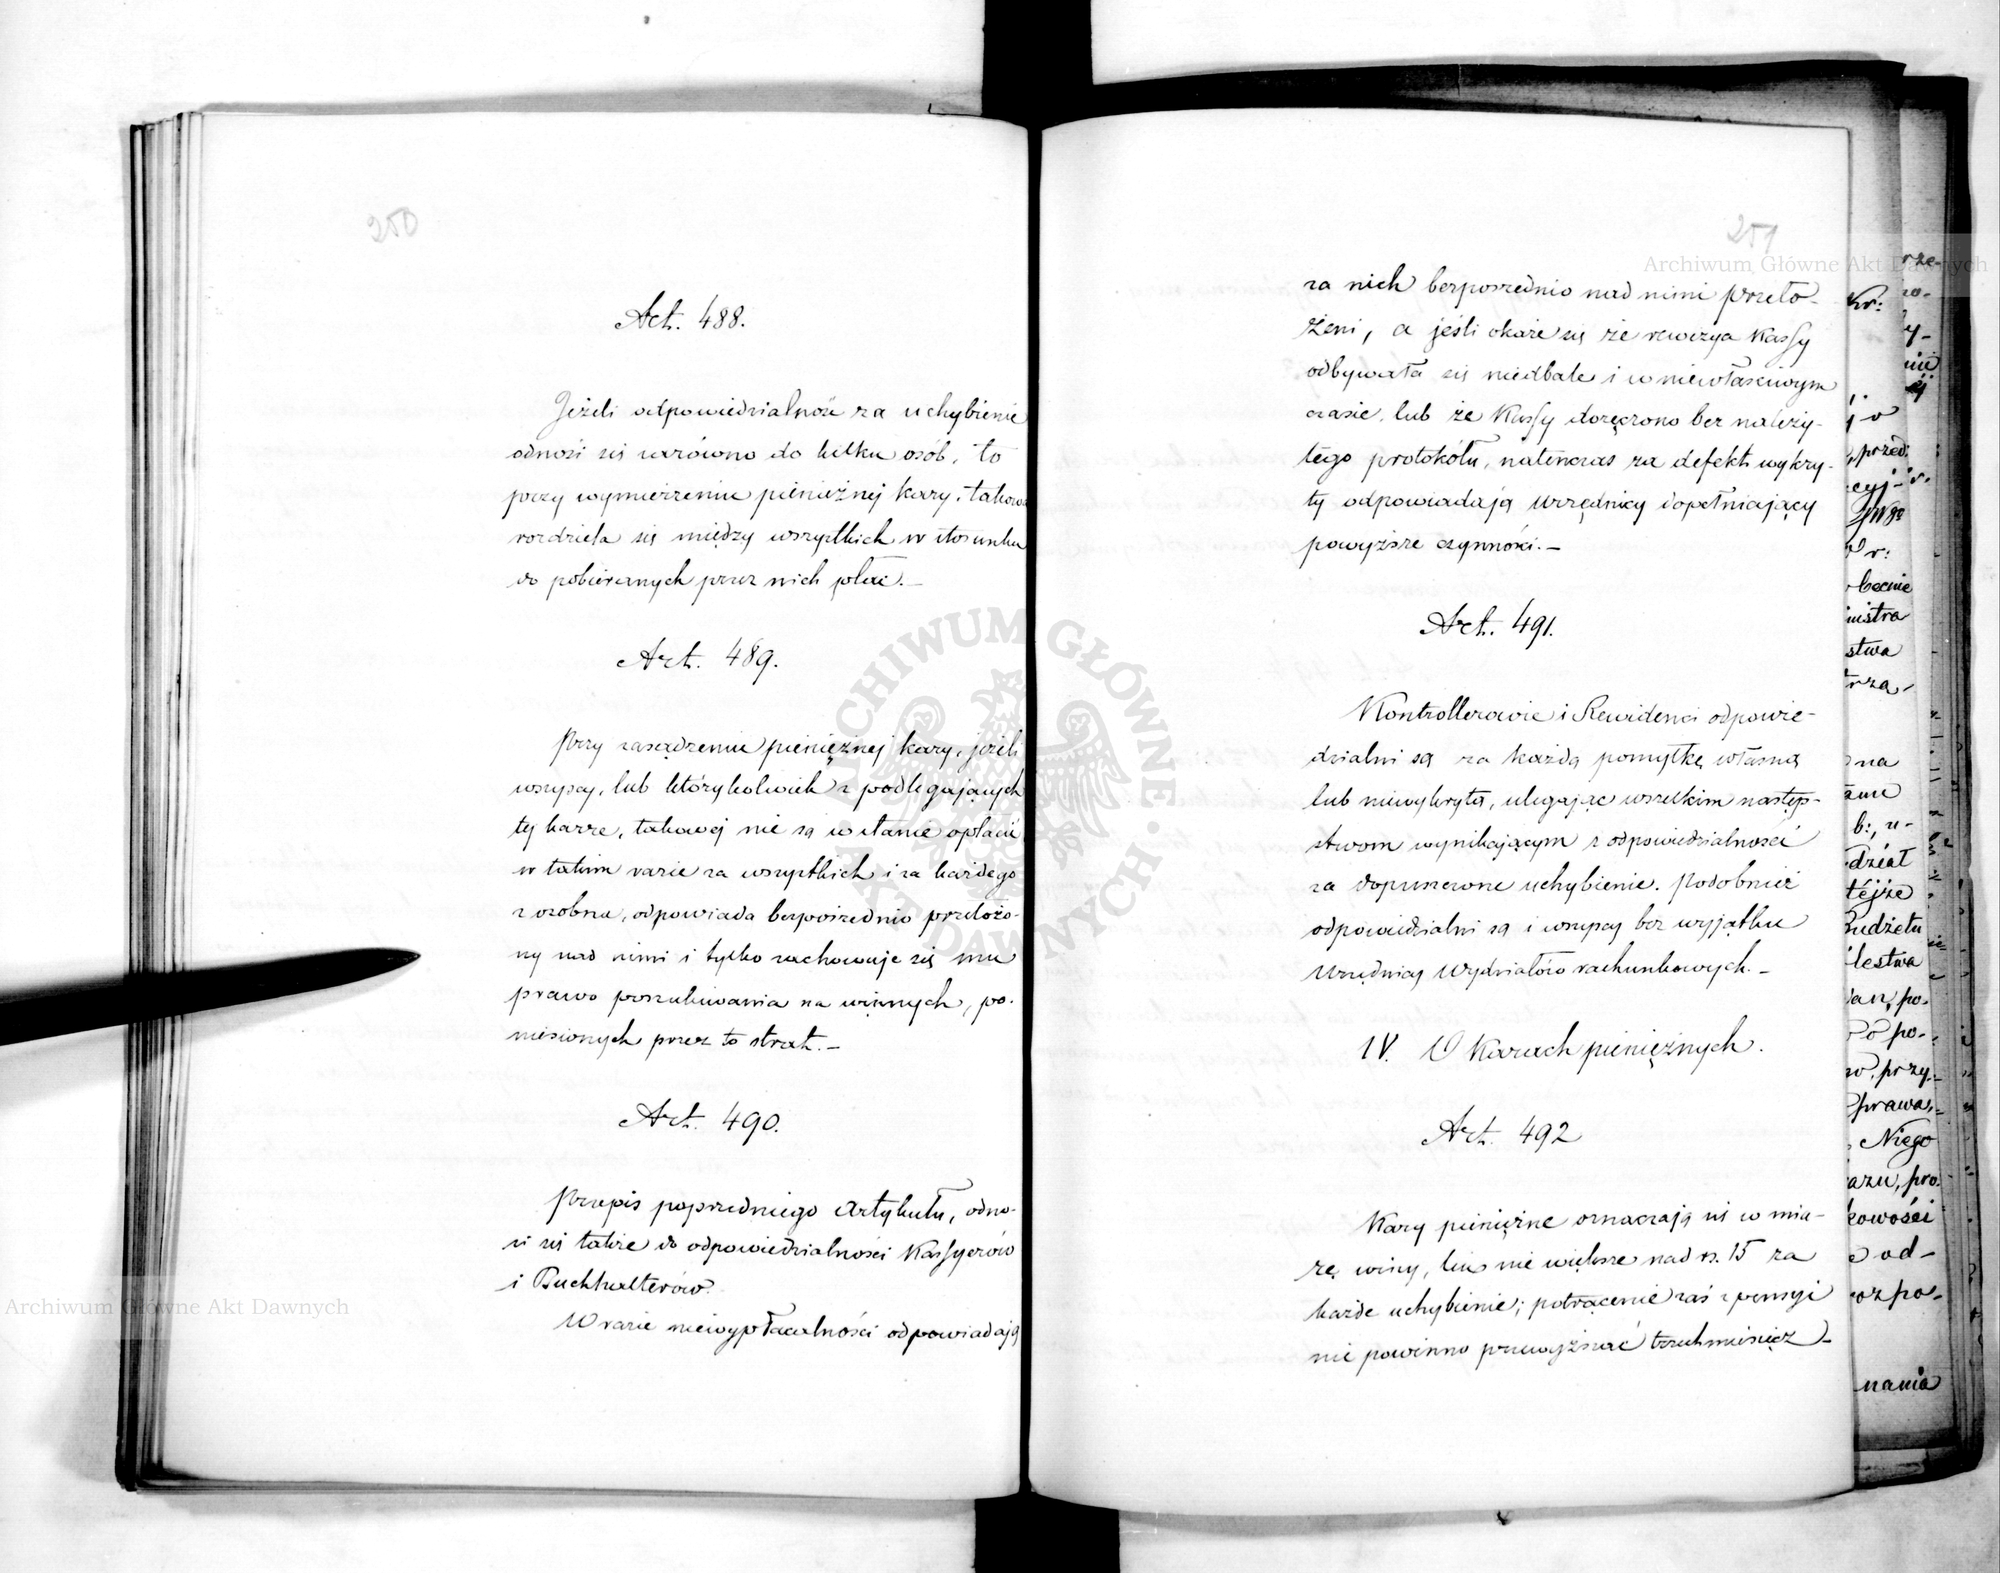 250
Art. 488.
Jeżeli odpowiedzialność za uchybienie
odnosi się zarówno do kilku osób, to
przy wymierzeniu pieniężnej kary, takowa
rozdziela się między wszystkich w stosunku
do pobieranych przez nich płac.—
Art. 489.
Przy zasądzeniu pieniężnej kary, jeżeli
wszyscy, lub którykolwiek z podlegających
tej karze, takowej nie są w stanie opłacić
w takim razie za wszystkich i za każdego
z osobna, odpowiada bezpośrednio przełożo-
ny nad nimi i tylko zachowuje się mu
prawo poszukiwania na winnych, po-
niesionych przez to strat.—
Art. 490.
Przepis poprzedniego Artykułu, odno-
si się także do odpowiedzialności Kassyerów
i Buchhalterów.
W razie niewypłacalności odpowiadają
251
za nich bezpośrednio nad nimi przeło-
żeni, a jeśli okaże się że rewizya Kassy
odbywała się niedbale i w niewłaściwym
czasie, lub że Kassy doręczono bez należy-
tego protokółu, natenczas za defekt wykry-
ty odpowiadają Urzędnicy dopełniający
powyższe czynności.—
Art. 491.
Kontrollerowie i Rewidenci odpowie-
dzialni są za każdą pomyłkę własną
lub niewykrytą, ulegając wszelkim następ-
stwom wynikającym z odpowiedzialności
za dopuszczone uchybienie. Podobnież
odpowiedzialni są i wszyscy bez wyjątku
Urzędnicy Wydziałów rachunkowych.—
IV. O Karach pieniężnych.
Art. 492
Kary pieniężne oznaczają się w mia-
rę winy, lecz nie większe nad rs. 15 za
każde uchybienie; potrącenie zaś z pensyi
nie powinno przewyższać trzechmiesięcz-
Archiwum Główne Akt Dawnych
Archiwum Główne Akt Dawnych
ARCHIWUM GŁÓWNE · AKT DAWNYCH ·